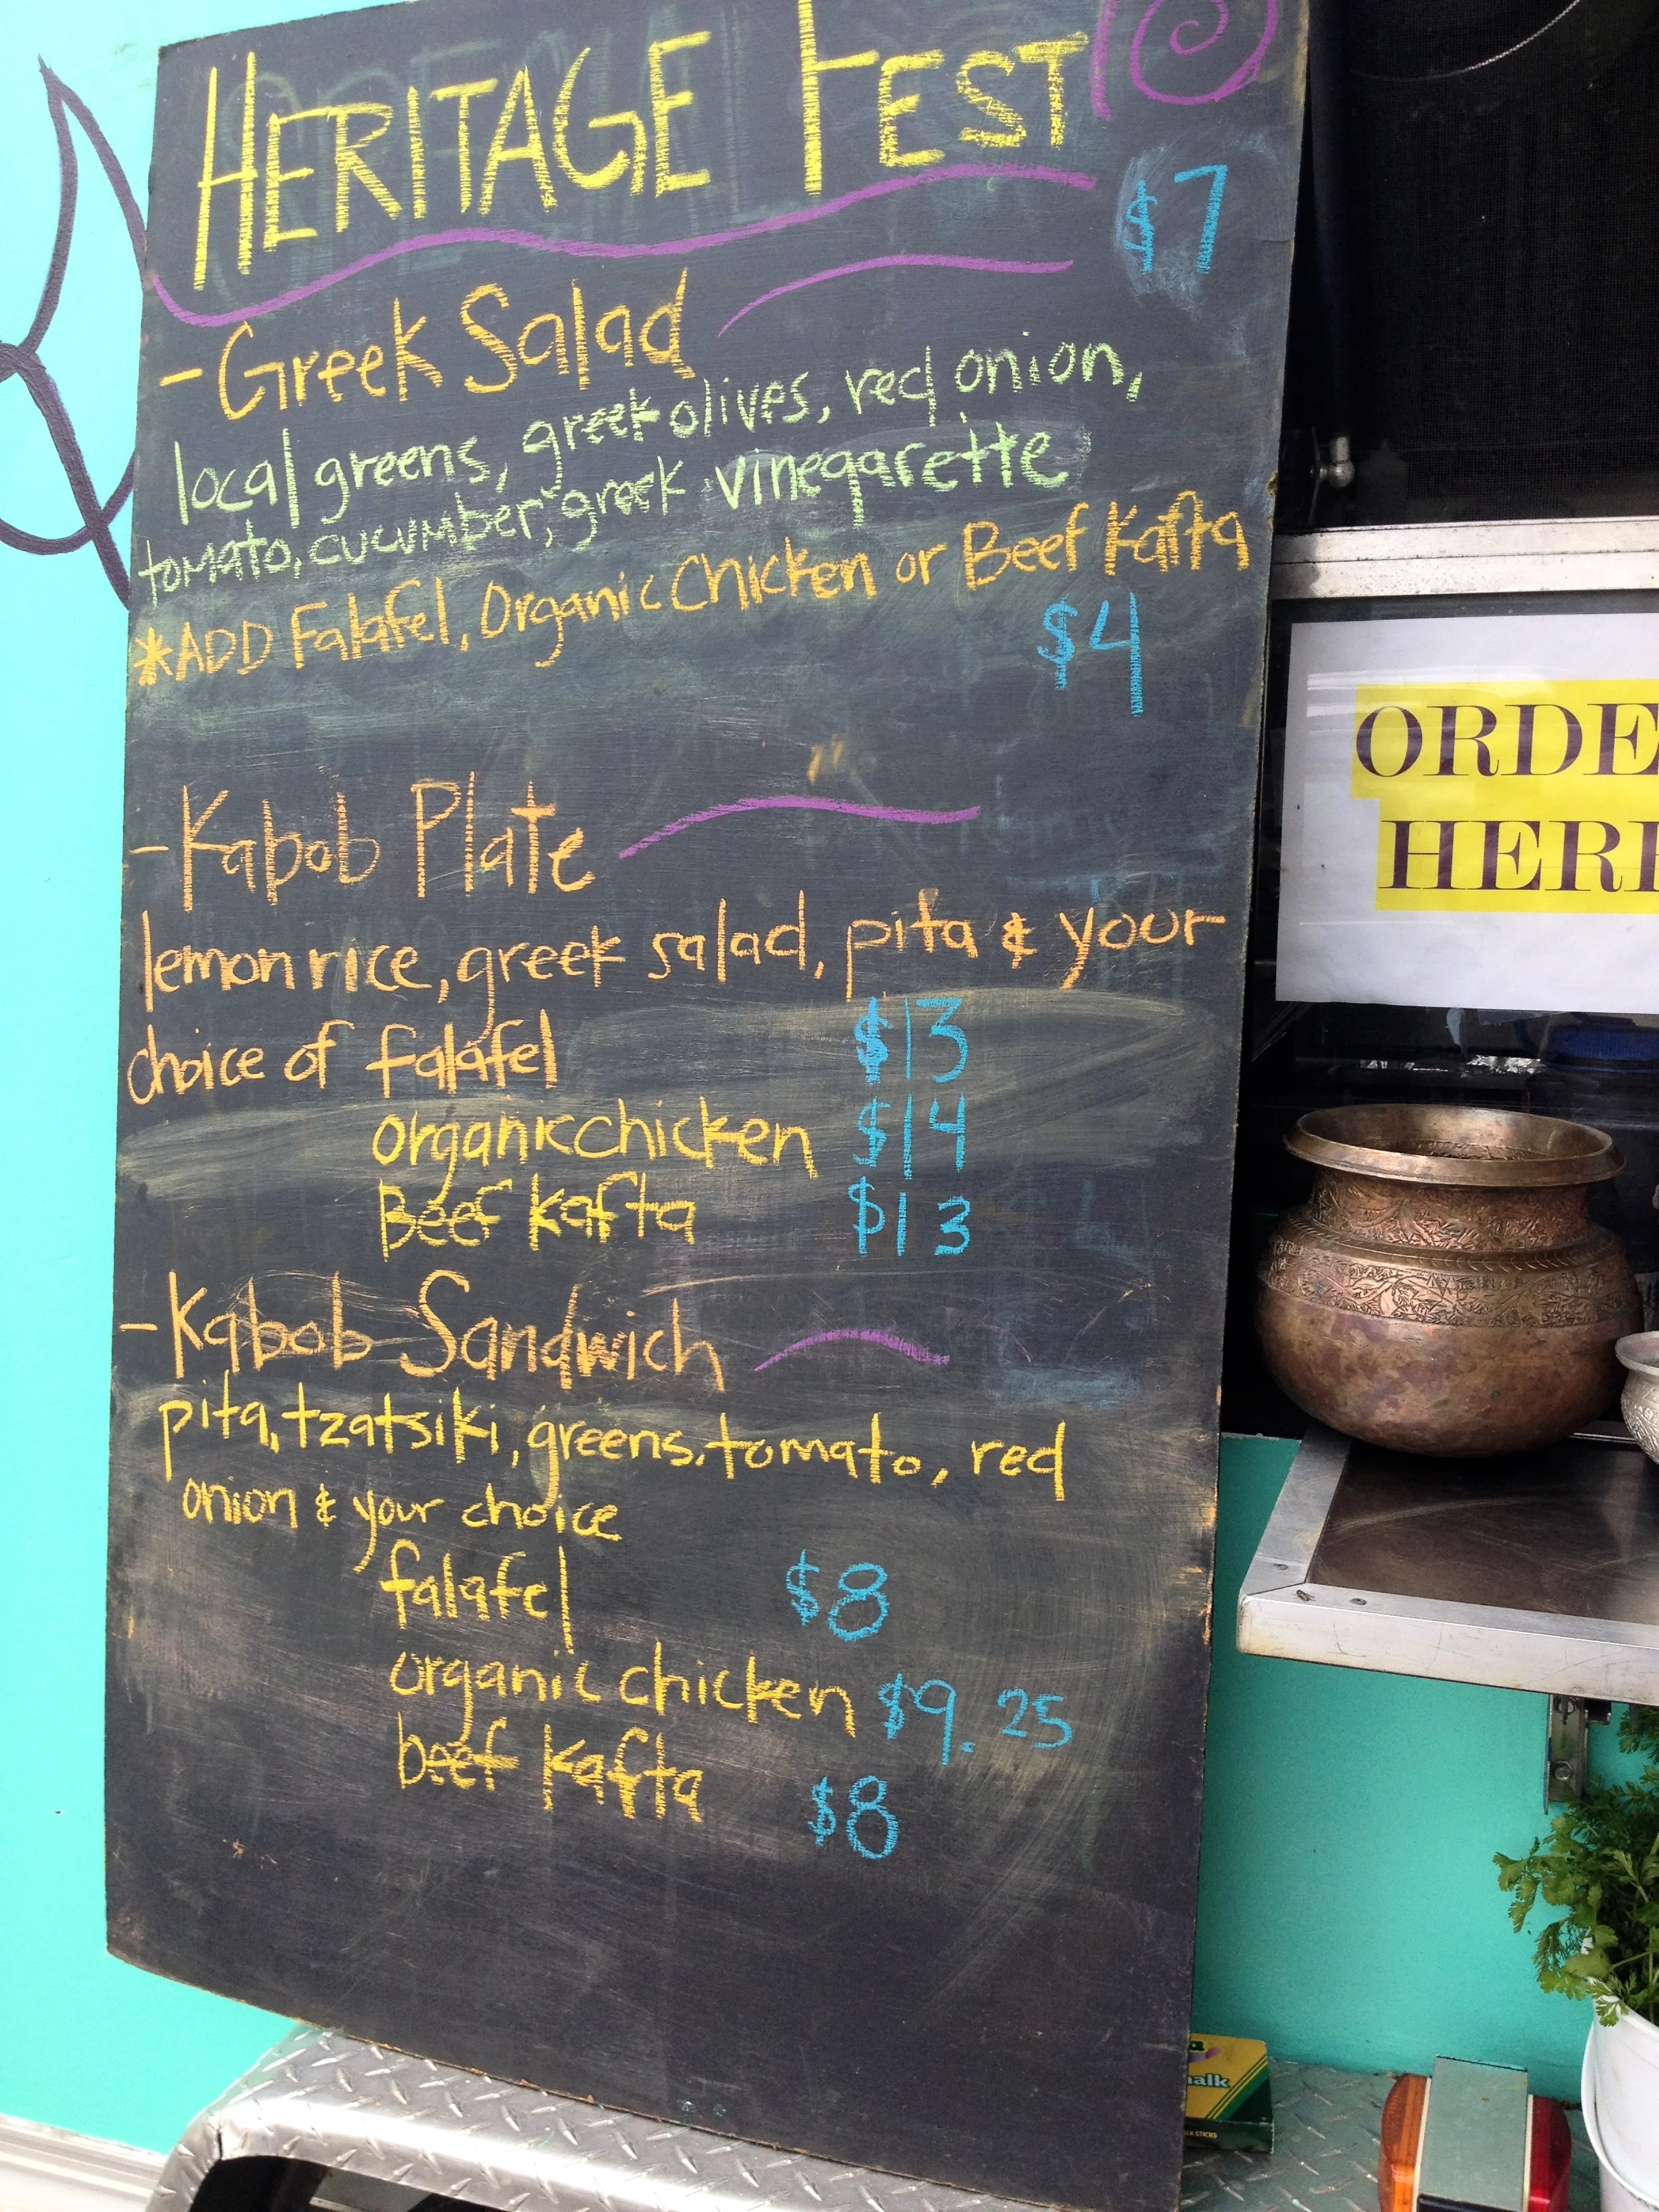 HERITAGE FEST
$7
- Greek Salad
local greens, greek olives, red onion,
tomato, cucumber, greek vinegarette
*ADD Falafel, Organic Chicken or Beef Kafta
$4
- Kabob Plate
lemon rice, greek salad, pita & your
choice of falafel $13
organic chicken $14
Beef kafta $13
- Kabob Sandwich
pita, tzatsiki, greens, tomato, red
onion & your choice
falafel $8
organic chicken $9.25
beef kafta $8
ORDE
HER
alk